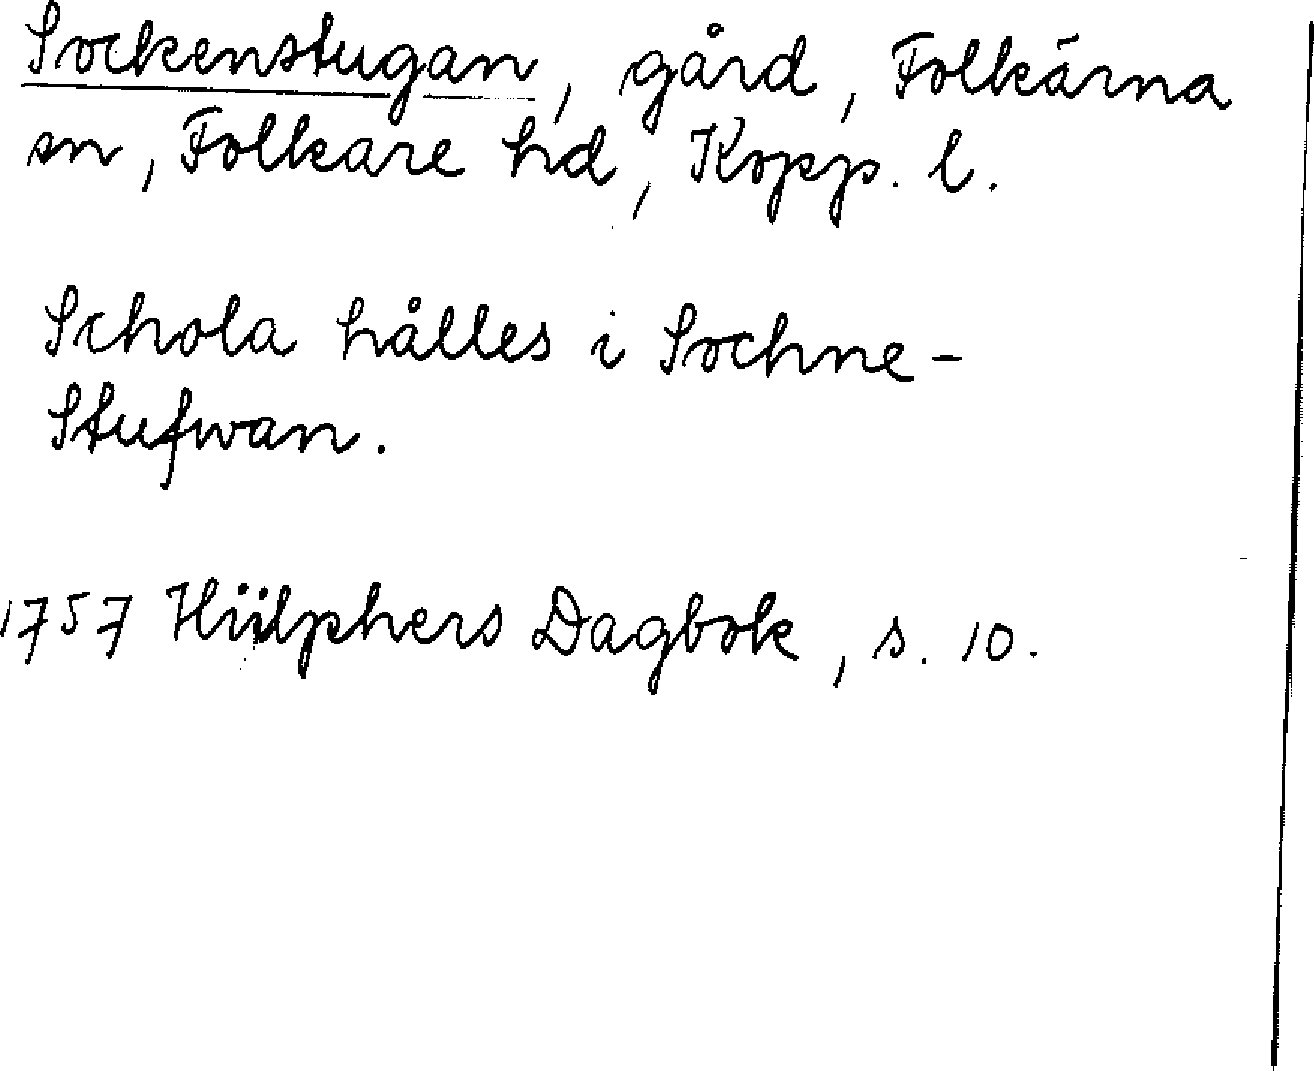 Sockenstugan, gård, Folkärna
sn, Folkare hd, Kopp. l.
Schola hålles i Sochne-
Stufwan.
1757 Hülphers Dagbok, s. 10.